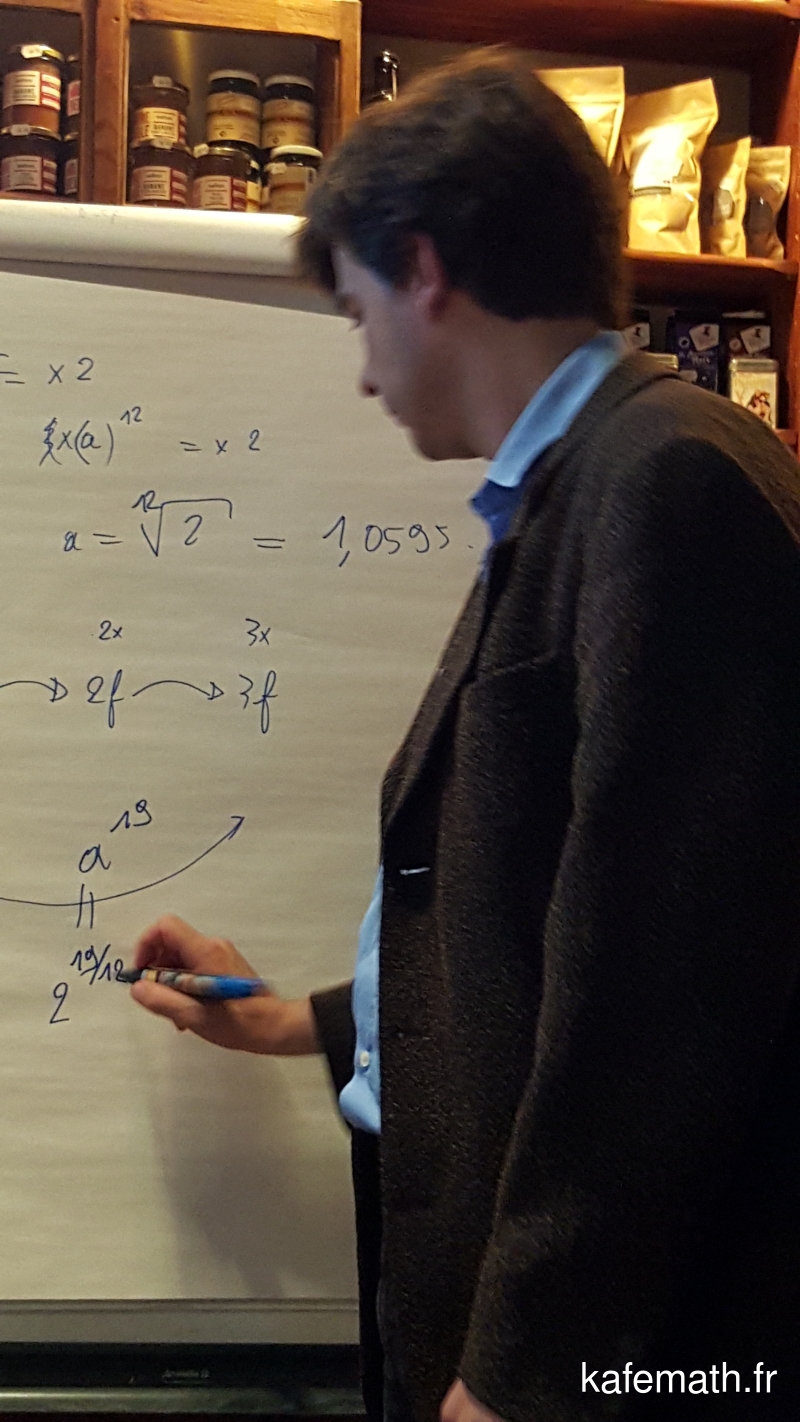 = x 2
x(a)^12 = x 2
a = ¹²√2 = 1,0595.
2x 3x
→ 2f → 3f
a^19
||
2^19/12
kafemath.fr